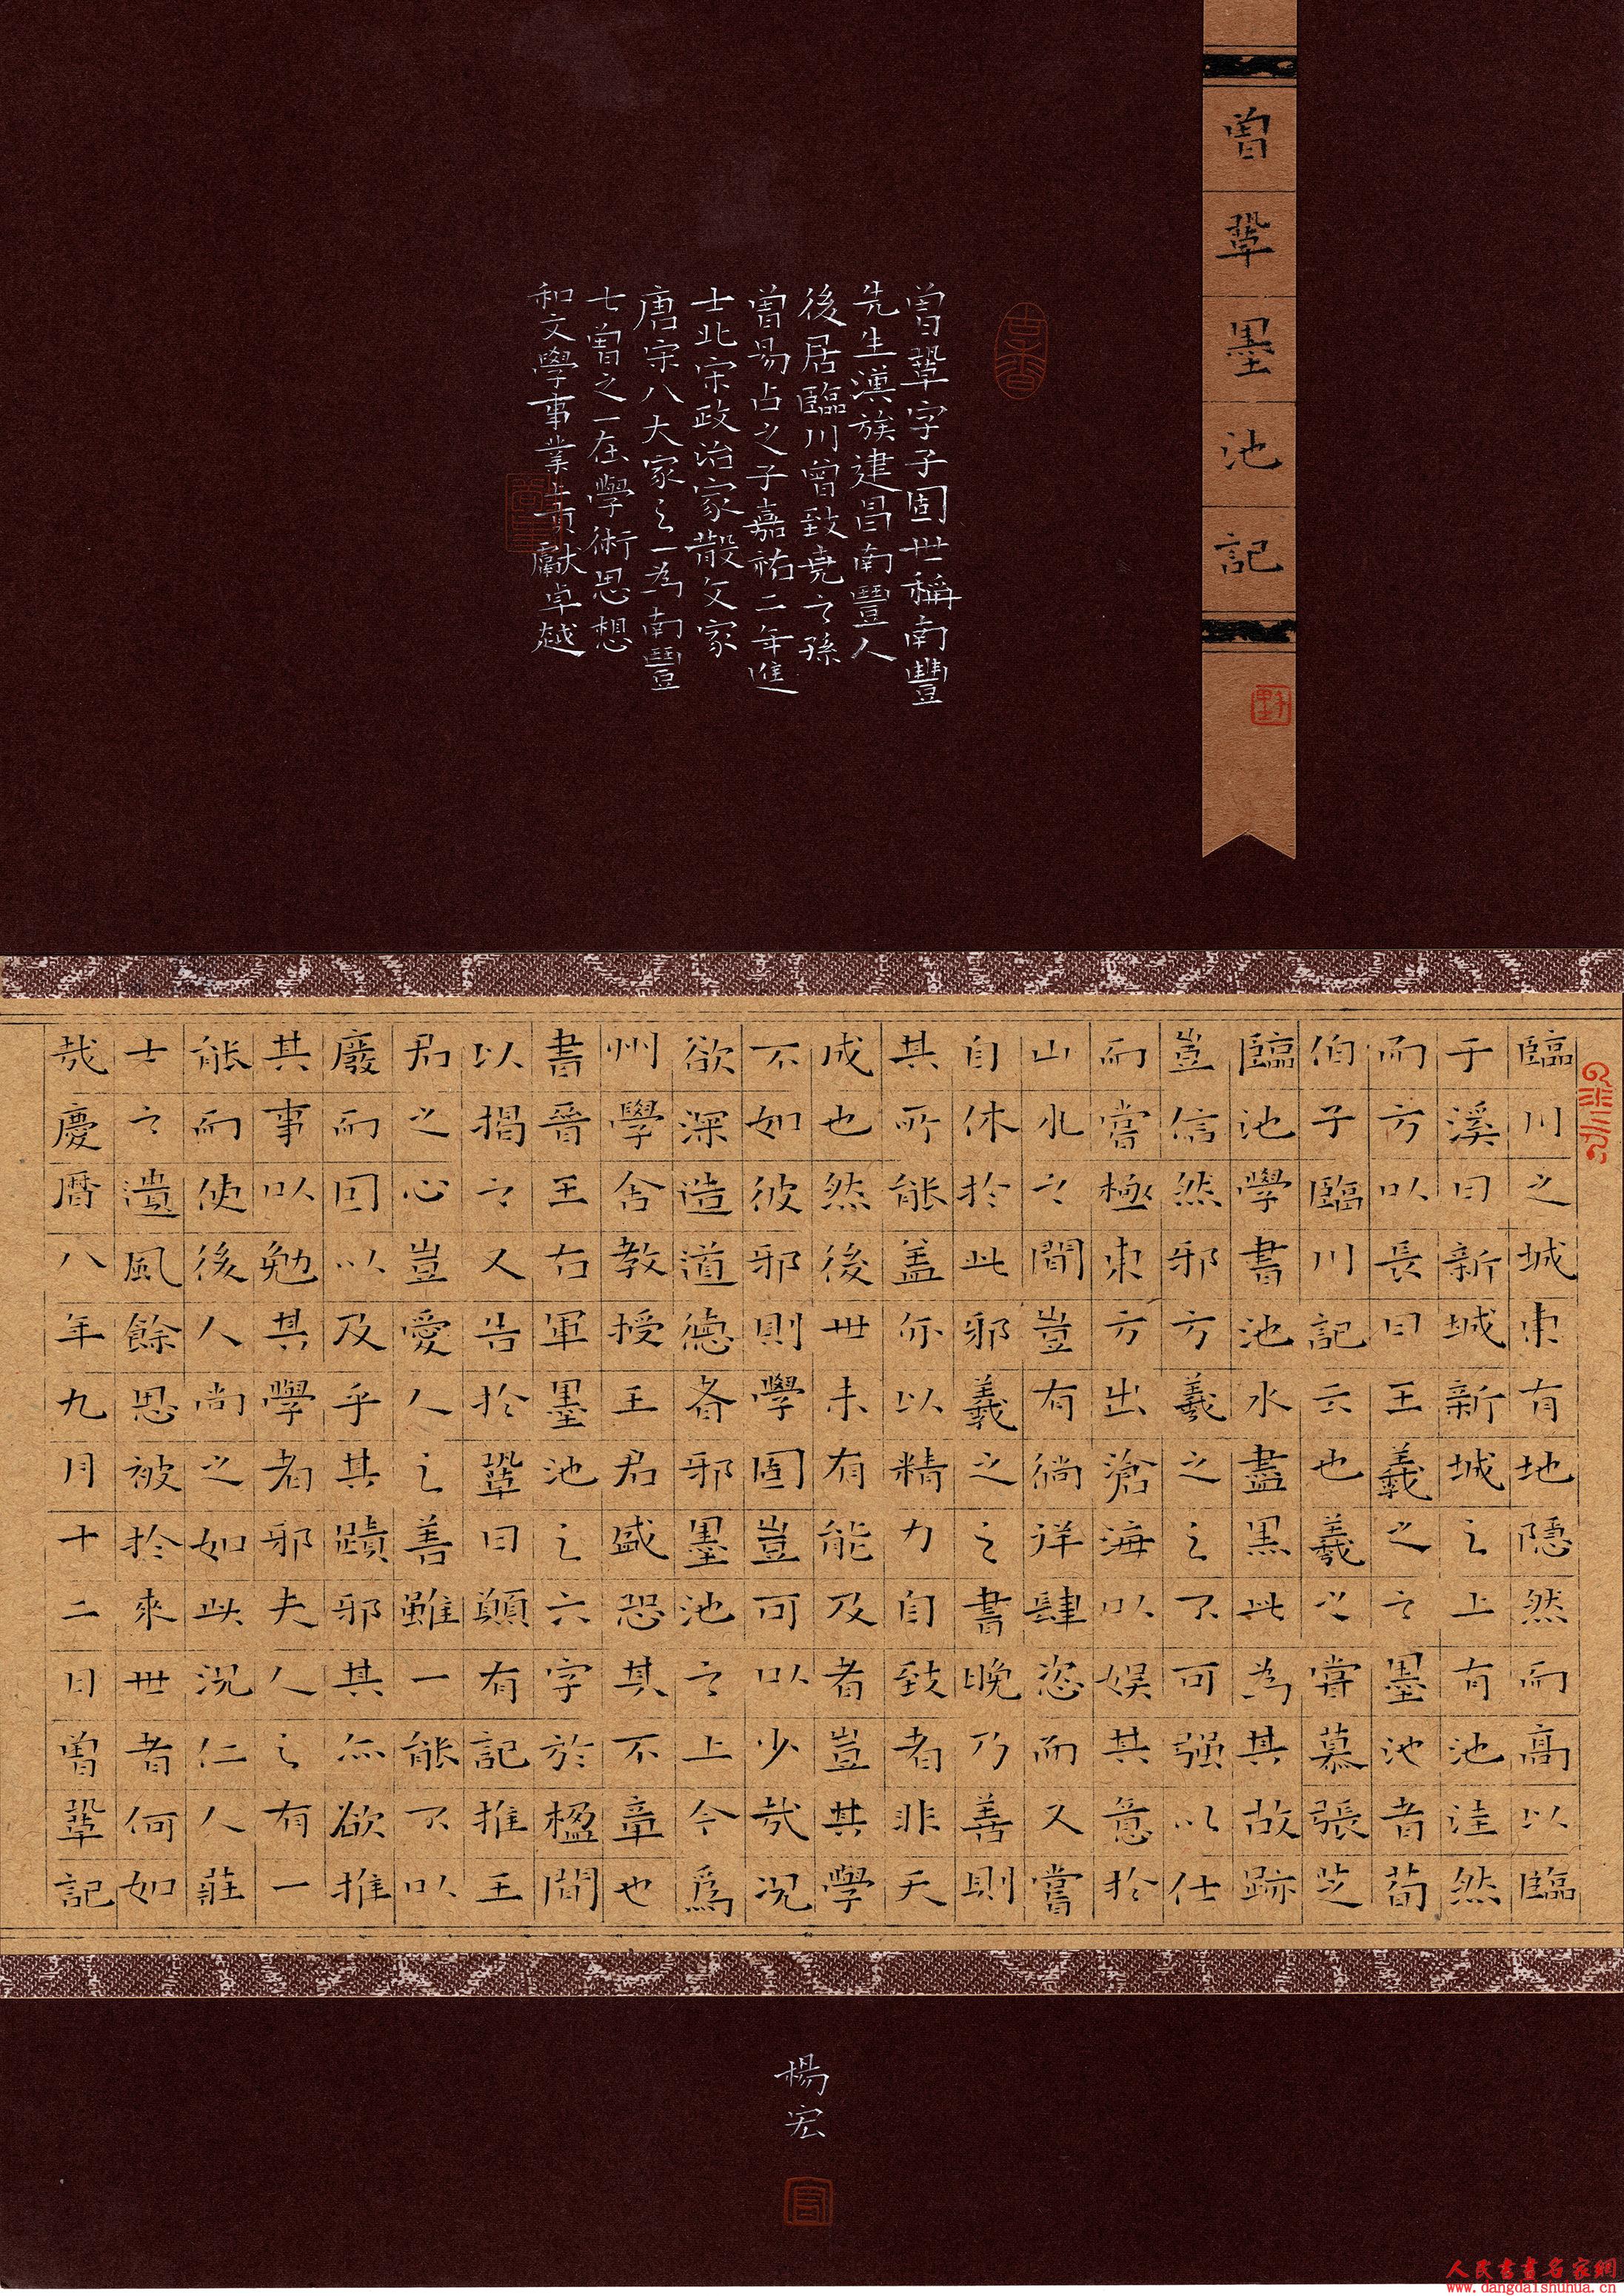 曾鞏墨池記
曾鞏字子固世稱南豐
先生漢族建昌南豐人
後居臨川曾致堯之孫
曾易占之子嘉祐二年進
士北宋政治家散文家
唐宋八大家之一為南豐
七曾之一在學術思想
和文學事業上貢獻卓越
臨川之城東有地隱然而高以臨
于溪曰新城新城之上有池洼然
而方以長曰王羲之之墨池者荀
伯子臨川記云也羲之嘗慕張芝
臨池學書池水盡黑此為其故跡
豈信然邪方羲之之不可强以仕
而嘗極東方出滄海以娛其意於
山水之間豈有徜徉肆恣而又嘗
自休於此邪羲之之書晚乃善則
其所能盖亦以精力自致者非天
成也然後世未有能及者豈其學
不如彼邪則學固豈可以少哉況
欲深造道德者邪墨池之上今爲
州學舍教授王君盛恐其不章也
書晉王右軍墨池之六字於楹間
以揭之又告於鞏曰願有記推王
君之心豈愛人之善雖一能不以
廢而因以及乎其蹟邪其亦欲推
其事以勉其學者邪夫人之有一
能而使後人尚之如此況仁人莊
士之遺風餘思被於來世者何如
哉慶暦八年九月十二日曾鞏記
楊宏
人民書畫名家網
www.dangdaishuhua.cn